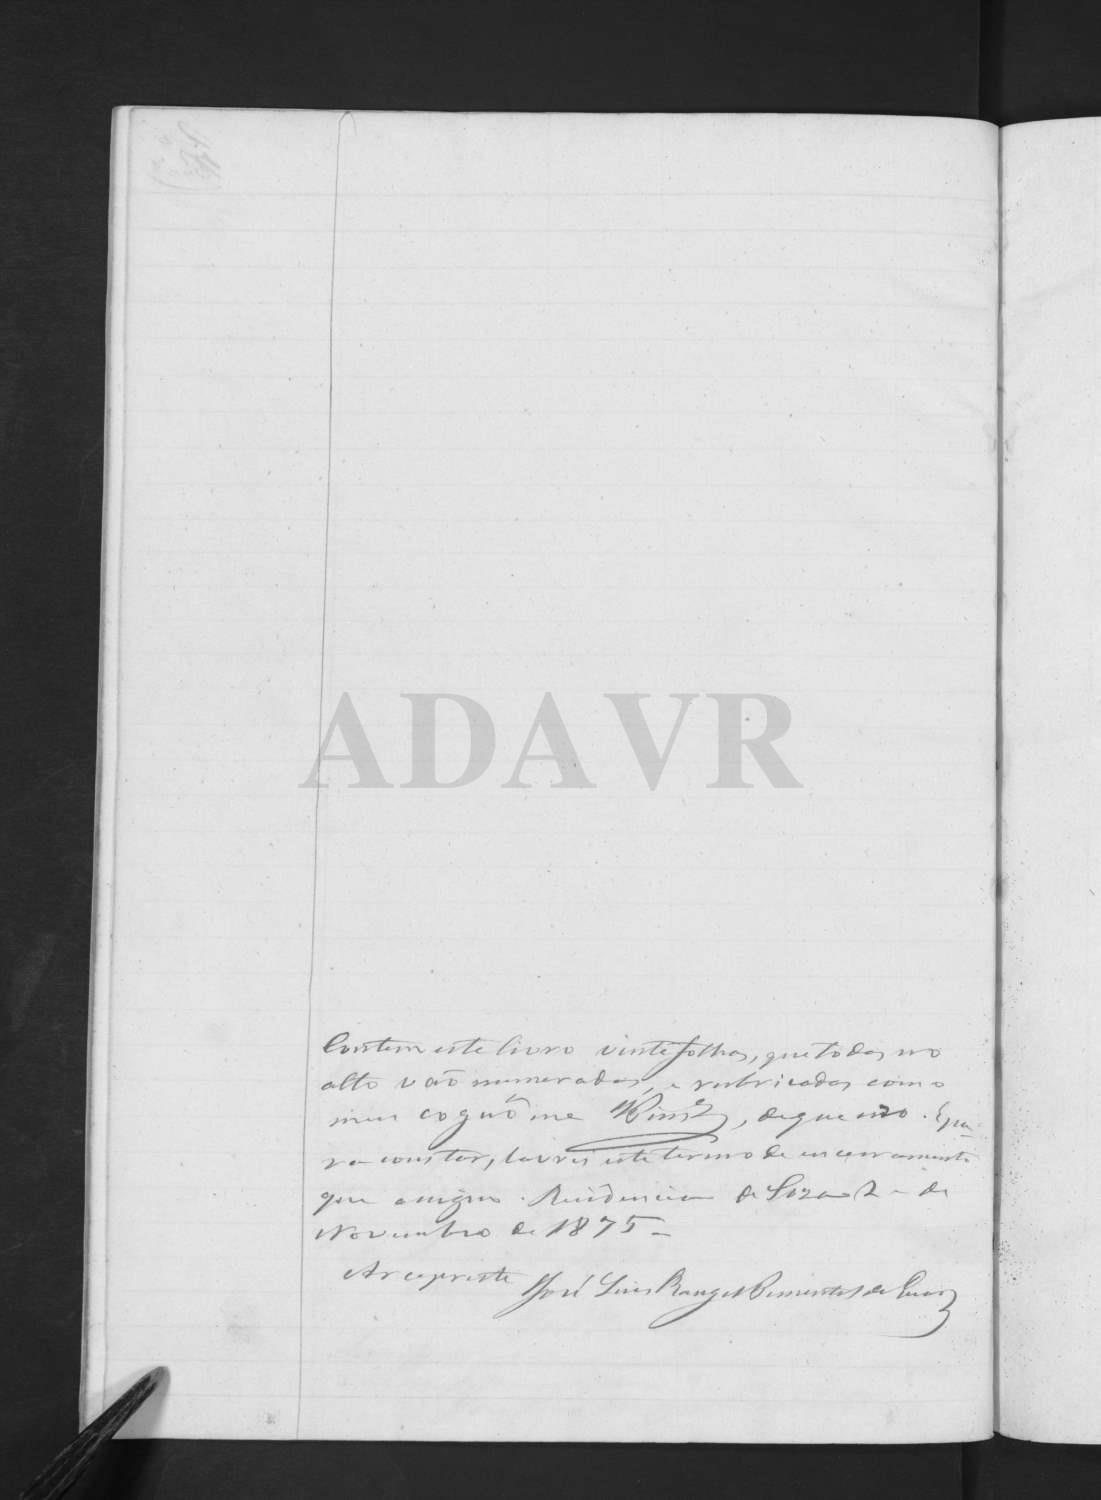 ADAVR
Contem este livro vinte folhas, que todas no
alto vaõ numeradas, e rubricadas com o
meu cognôme, de que uzo. E pa-
ra constar, lavrei este termo de encerramento
que assigno. Residencia de Soza 2 de
Novembro de 1875 =
Arcipreste José Luis Rangel Pimentel de